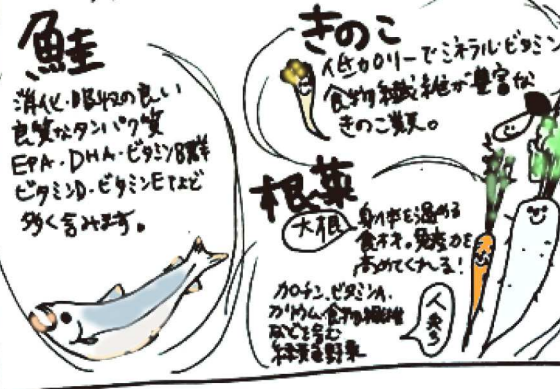 鮭
消化・吸収の良い
良質なタンパク質
EPA・DHA・ビタミンB群
ビタミンD・ビタミンEなど
多く含みます。
きのこ
低カロリーでミネラル・ビタミン
食物繊維が豊富な
きのこ類。
根菜
大根
身体を温める
食材。免疫力を
高めてくれる!
人参
カロチン、ビタミンA、
カリウム、食物繊維
などを含む
緑黄色野菜